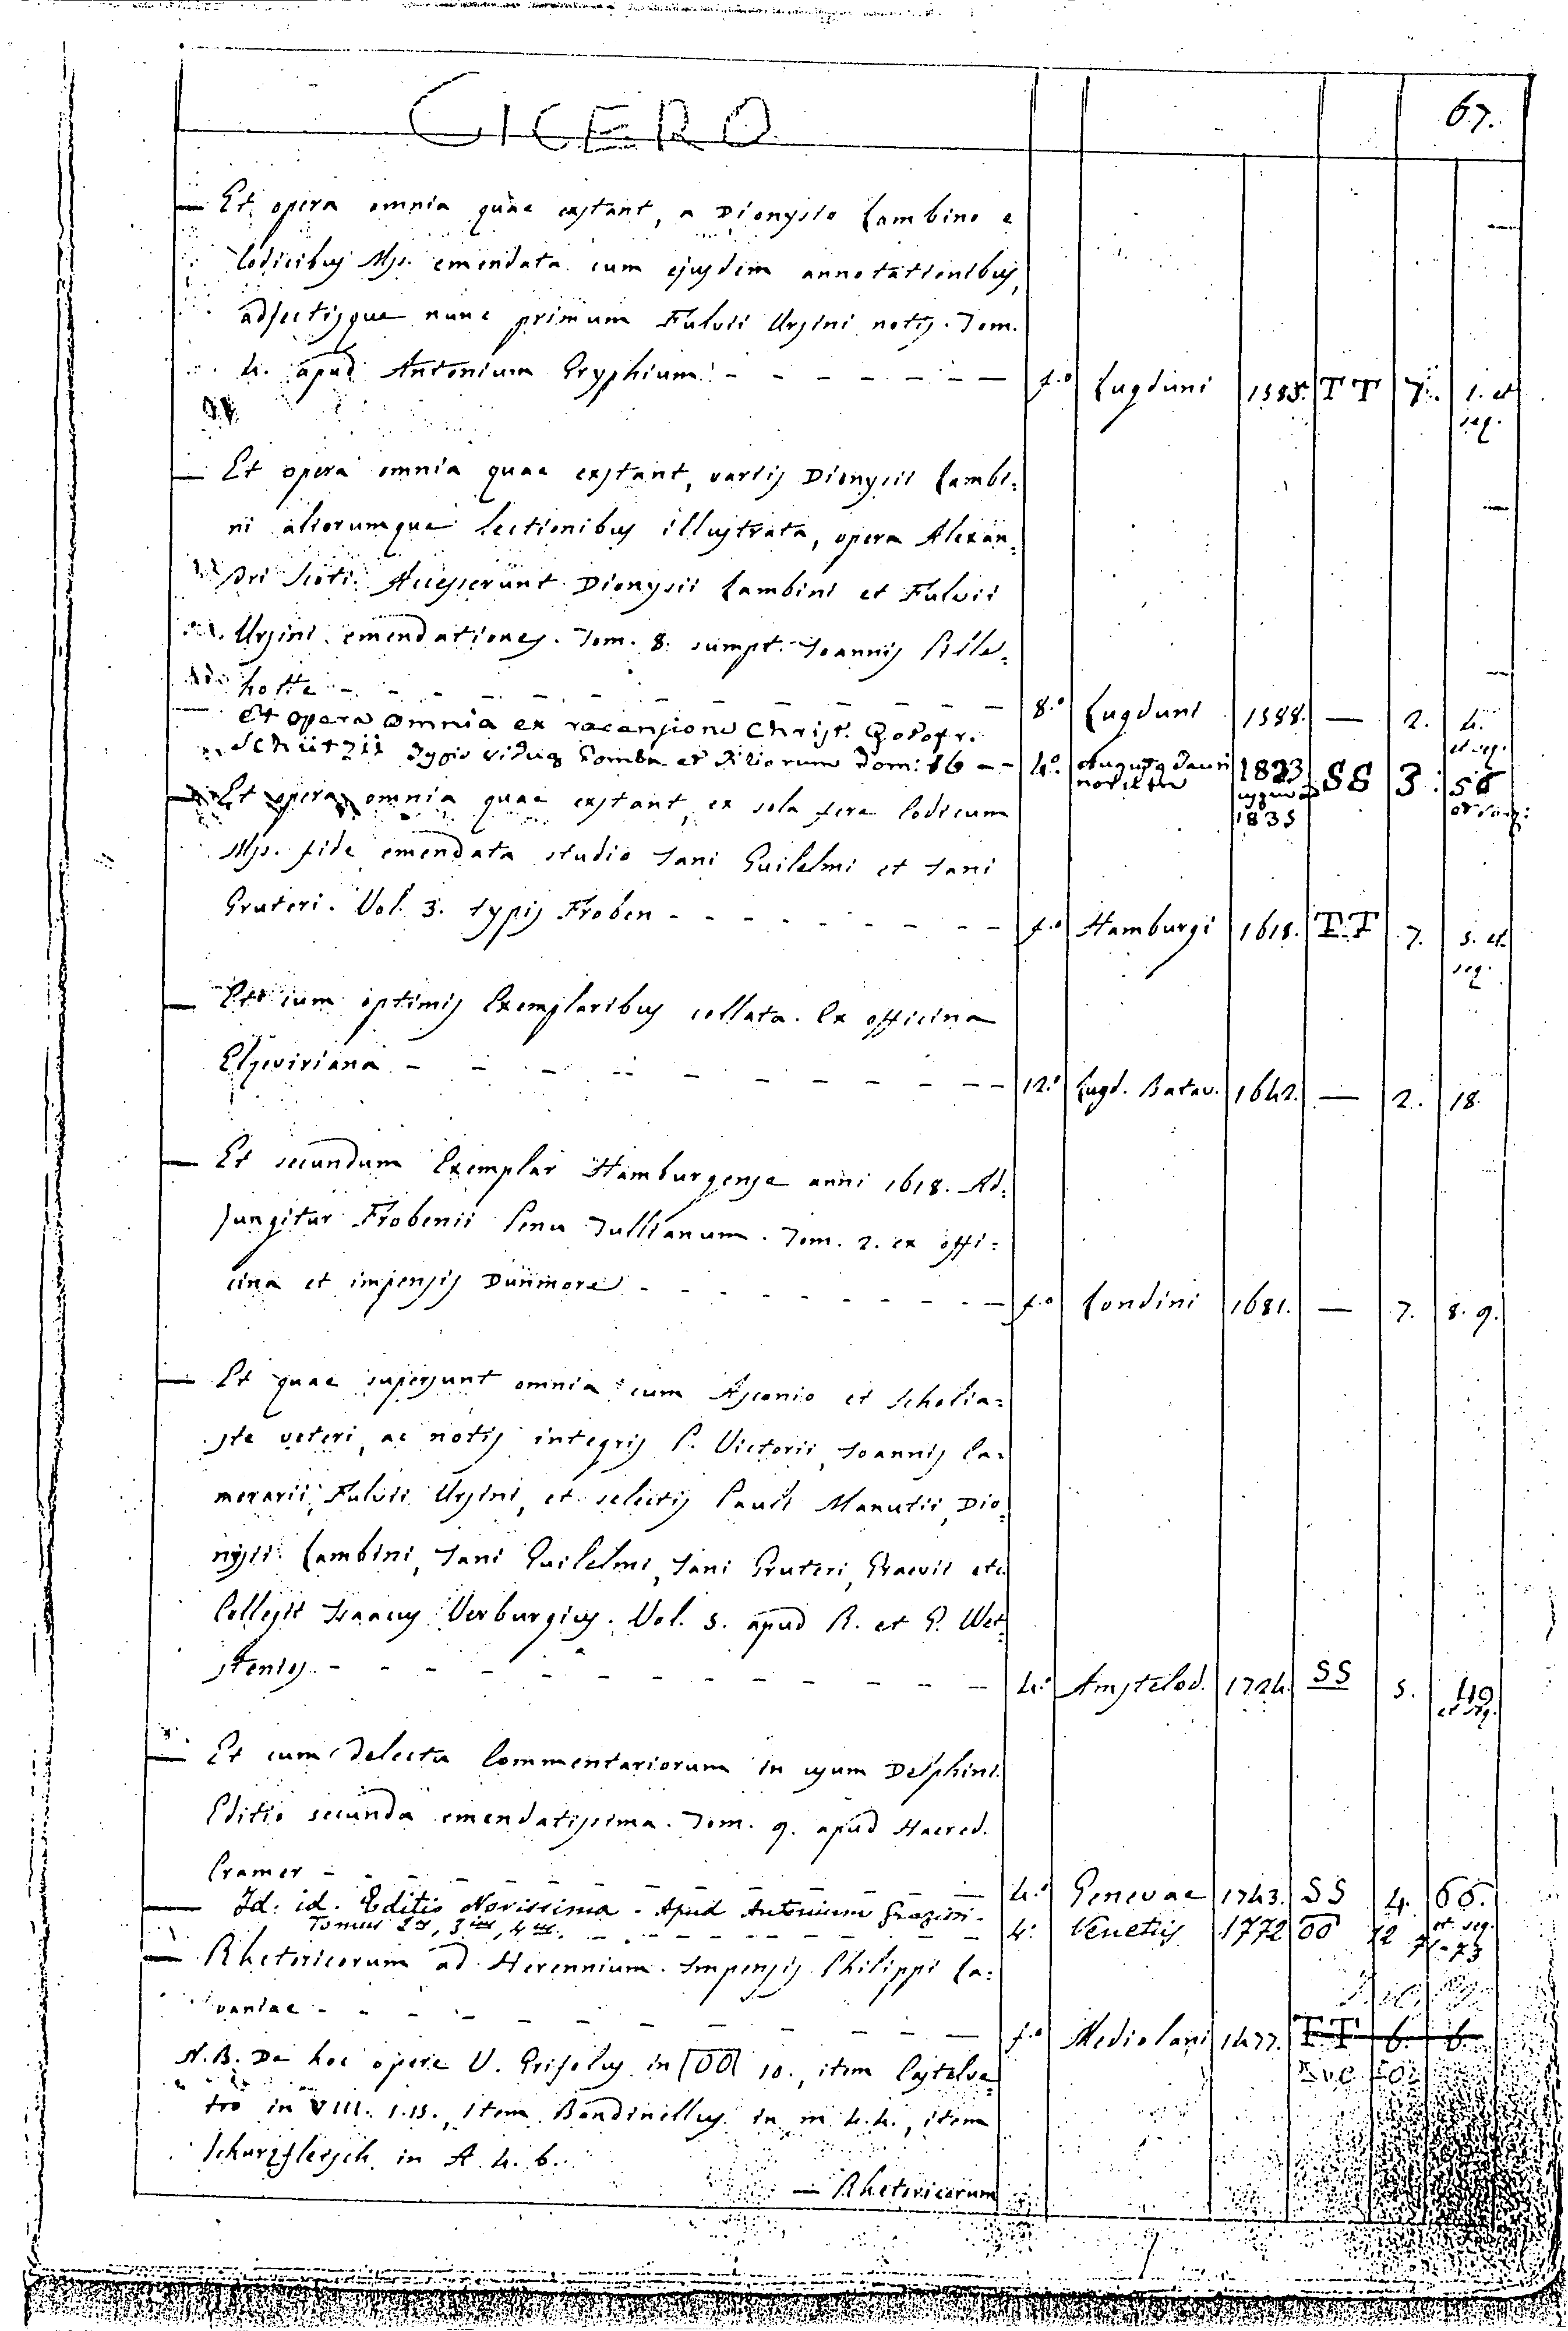 CICERO 67.
— Et opera omnia quae exstant, a Dionysio Lambino e
Codicibus Mss. emendata cum ejusdem annotationibus,
adjectisque nunc primum Fulvii Ursini notis. Tom.
4. apud Antonium Gryphium - - - - - - - — f.o Lugduni 1585. TT 7. 1. et
seq.
— Et opera omnia quae exstant, variis Dionysii Lambi=
ni aliorumque lectionibus illustrata, opera Alexan=
dri Scoti. Accesserunt Dionysii Lambini et Fulvii
Ursini emendationes. Tom. 8. sumpt. Joannis Pille=
hotte - - - - - - - - - - - — 8.o Lugduni 1588. — 2. 4.
et seq.
Et opera omnia ex recensione Christ. Godofr.
Schützii Typis viduae Pomba et Filiorum Tom: 16 - - 4.o Augustae Tauri
norum 1823
usque ad
1835 SS 3. 56
et seq:
— Et opera omnia quae exstant, ex sola fere Codicum
Mss. fide emendata studio Jani Guilelmi et Jani
Gruteri. Vol. 3. typis Froben - - - - - - - - — f.o Hamburgi 1618. TT 7. 5. et
seq.
— Et cum optimis Exemplaribus collata. Ex officina
Elzeviriana - - - - - - - - - — 12.o Lugd. Batav. 1642. — 2. 18.
— Et secundum Exemplar Hamburgense anni 1618. Ad=
jungitur Frobenii Penu Tullianum. Tom. 2. ex offi=
cina et impensis Dunmore - - - - - - - - — f.o Londini 1681. — 7. 8. 9.
— Et quae supersunt omnia cum Asconio et Scholia=
ste veteri, ac notis integris P. Victorii, Joannis Ca=
merarii, Fulvii Ursini, et selectis Pauli Manutii, Dio=
nysii Lambini, Jani Guilelmi, Jani Gruteri, Graevii etc.
Collegit Isaacus Verburgius. Vol. 5. apud R. et G. Wet=
stenios - - - - - - - - - - - — 4.o Amstelod. 1724. SS 5. 49
et seq.
— Et cum delectu Commentariorum in usum Delphini.
Editio secunda emendatissima. Tom. 9. apud Haered.
Cramer - - - - - - - - - - - — 4.o Genevae 1743. SS 4. 66.
et seq.
— Id. id. Editio Novissima. Apud Antonium Graziosi.
Tomus 2us, 3us, 4us. - - - - - - - - 4.o Venetiis 1772 OO 12 71-73
— Rhetoricorum ad Herennium. Impensis Philippi La=
vaniae - - - - - - - - - - — f.o Mediolani 1477. TT 6. 6.
N.B. De hoc opere V. Grifolus in OO 10., item Castelve=
tro in VIII. 1.15., item Bandinellus in m 4.4., item
Schurzfleisch in A. 4. 6.
— Rhetoricorum